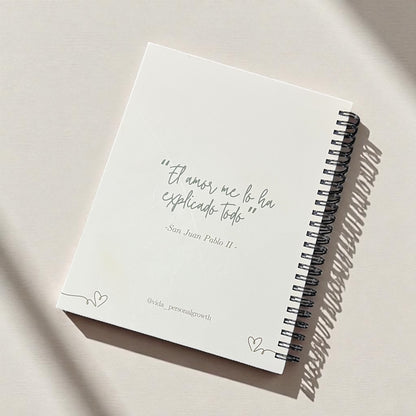 "El amor me lo ha
explicado todo"
-San Juan Pablo II -
@vida_personalgrowth